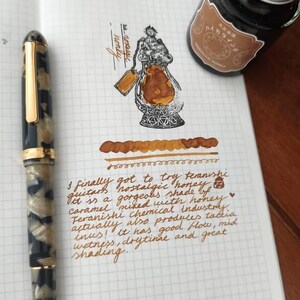 nostalgic
honey
I finally got to try teranishi
guitars nostalgic honey
It is a gorgeous shade of
caramel mixed with honey
Teranishi chemical industry
actually also produces tactia
inks! it has good flow, mid
wetness, drytime and great
shading.